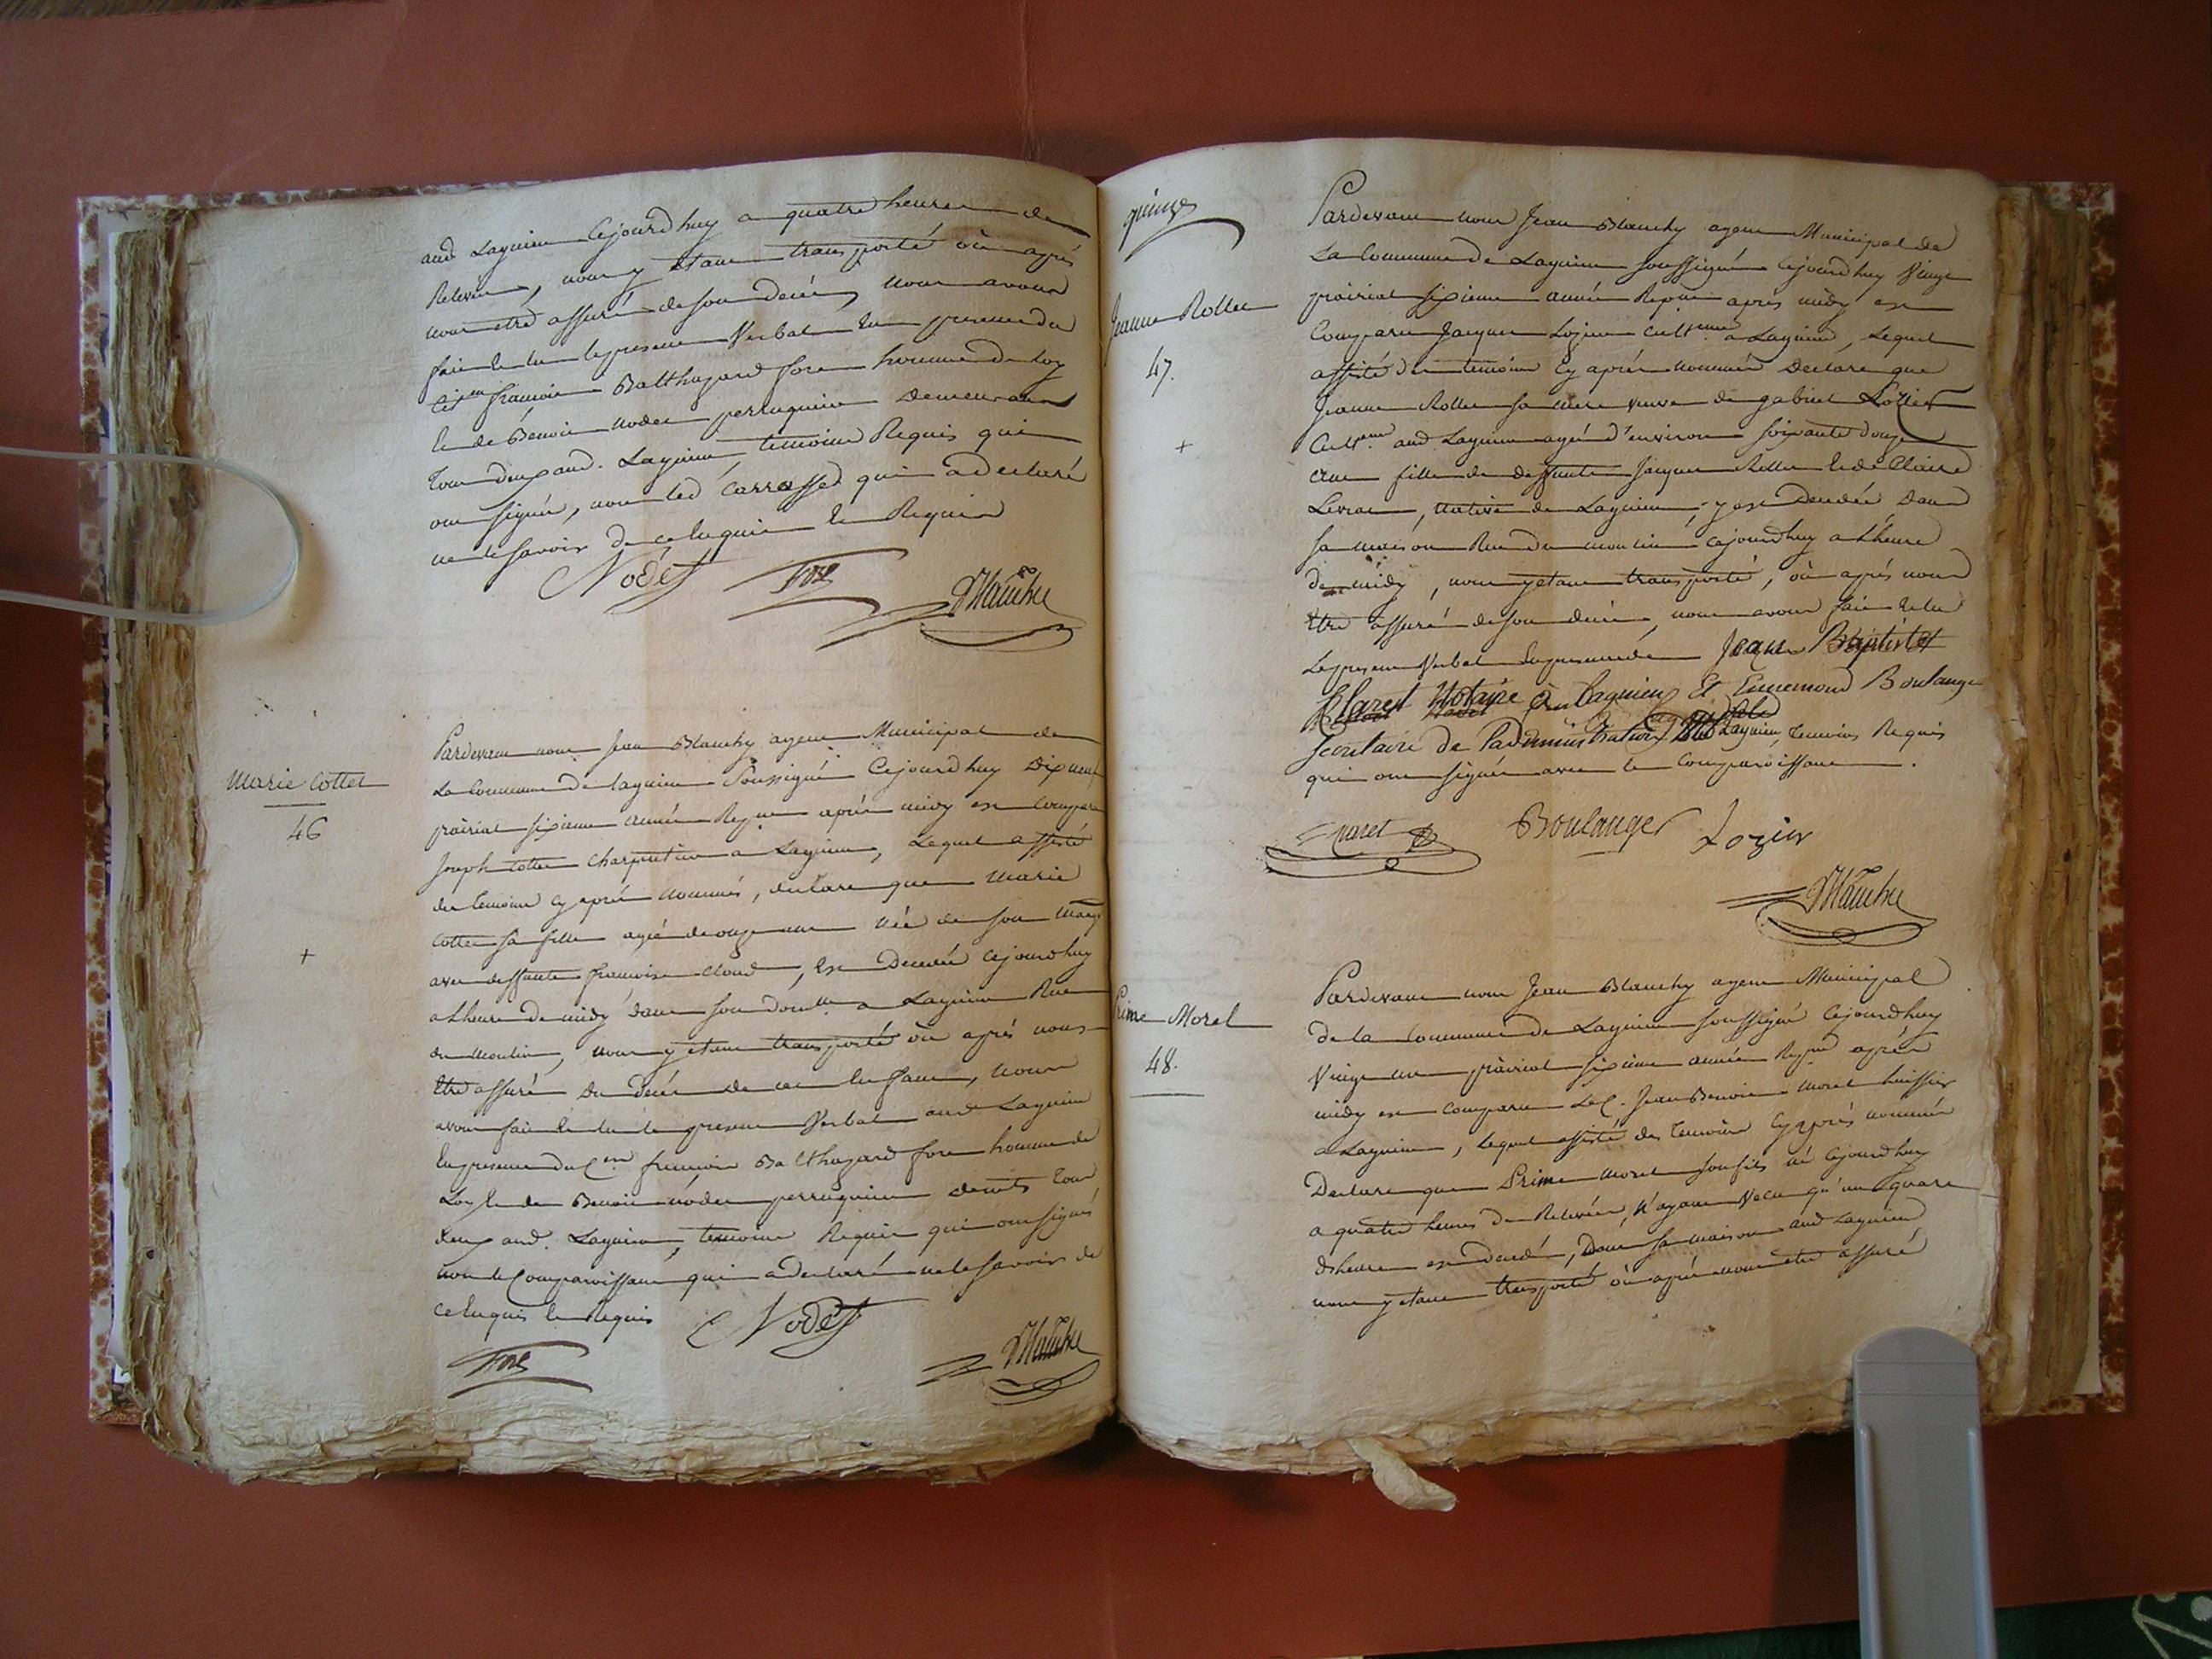 aud Lagnieu Cejourdhuy a quatre heures de
Relevée, nous y étant transporté où après
nous être assuré de son decès, nous avons
fait et lu le present Verbal en presence du
Cit.en françois Balthazard fore homme de Loy
et de Benoit nodet perruquier demeurant
Tous deux aud. Lagnieu, temoins Requis qui
ont signés, non led. Carrossed qui a declaré
ne le savoir de ce enquis et Requis
Nodet fore Blanchy
Marie Cottet
46
+
Pardevant nous Jean Blanchy agent Municipal de
La Commune de Lagnieu Soussigné Cejourdhuy Dix neuf
prairial sixieme année Repne après midy est comparu
Joseph Cottet Charpentier a Lagnieu, Lequel assisté
des temoins cy après nommés, declare que Marie
Cottet sa fille agée de onze ans née de son mariage
avec deffunte françoise Cloud, est Decedée cejourdhuy
a Lheure de midy dans son domlle a Lagnieu Rue
du Moulin, nous y étant transporté où après nous
être assuré du decès de cet enfant, nous
avons fait et lu le present Verbal aud Lagnieu
En presence du C.en francois Balthazard fore homme de
Loy et de Benoit nodet perruquier demts tous
deux aud. Lagnieu, temoins Requis qui ont signés
non le Comparoissant qui a declaré ne le savoir de
ce enquis et Requis Nodet
fore Blanchy
quinze
Jeanne Rollet
47.
+
Pardevant nous Jean Blanchy agent Municipal de
La Commune de Lagnieu soussigné Cejourdhuy Vingt
prairial sixieme année Repne après midy est
Comparu Jacques Lozier Cult.eur a Lagnieu, Lequel
assisté des temoins Cy après nommés Declare que
Jeanne Rollet sa mere veuve de gabriel Lozier
Cult.eur aud Lagnieu agée d'environ soixante douze
ans fille de deffunts Jacques Rollet et de Claire
Levrat, native de Lagnieu, y est Decedée dans
sa maison Rue du moulin cejourdhuy a Lheure
de midy, nous y etant transporté, où après nous
être assuré de son decès, nous avons fait et lu
Le present Verbal En presence de Jean Baptiste
Claret Notaire à Lagnieu Et Ennemond Boulanger
Secretaire de L'administration Lagnieu, Temoins Requis
qui ont signés avec le Comparoissant.
Claret Boulanger Lozier
Blanchy
Prime Morel
48.
Pardevant nous Jean Blanchy agent Municipal
de la Commune de Lagnieu soussigné Cejourdhuy
Vingt un prairial sixieme année Repne après
midy est comparu Le C. Jean Benoit Morel huissier
a Lagnieu, Lequel assisté des Temoins Cy après nommés
Declare que Prime Morel son fils né Cejourdhuy
a quatre heures de Relevée, n'ayant Vecu qu'un quart
d'heure est decedé, Dans sa maison aud Lagnieu
nous y etant transporté où après nous être assuré